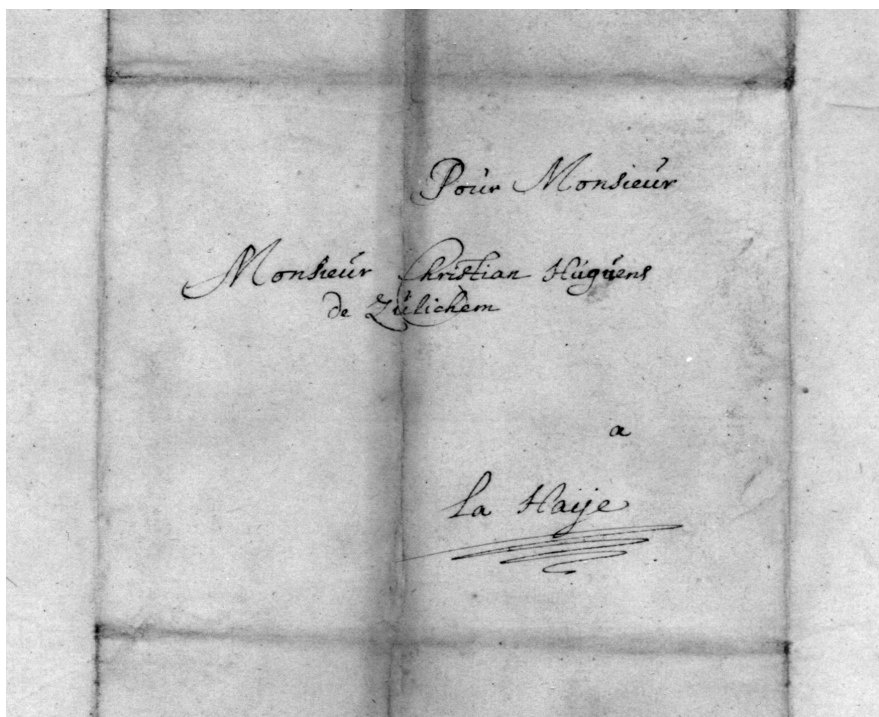 Pour Monsieur
Monsieur Christian Hugúens
de Zulichem
a
La Haije